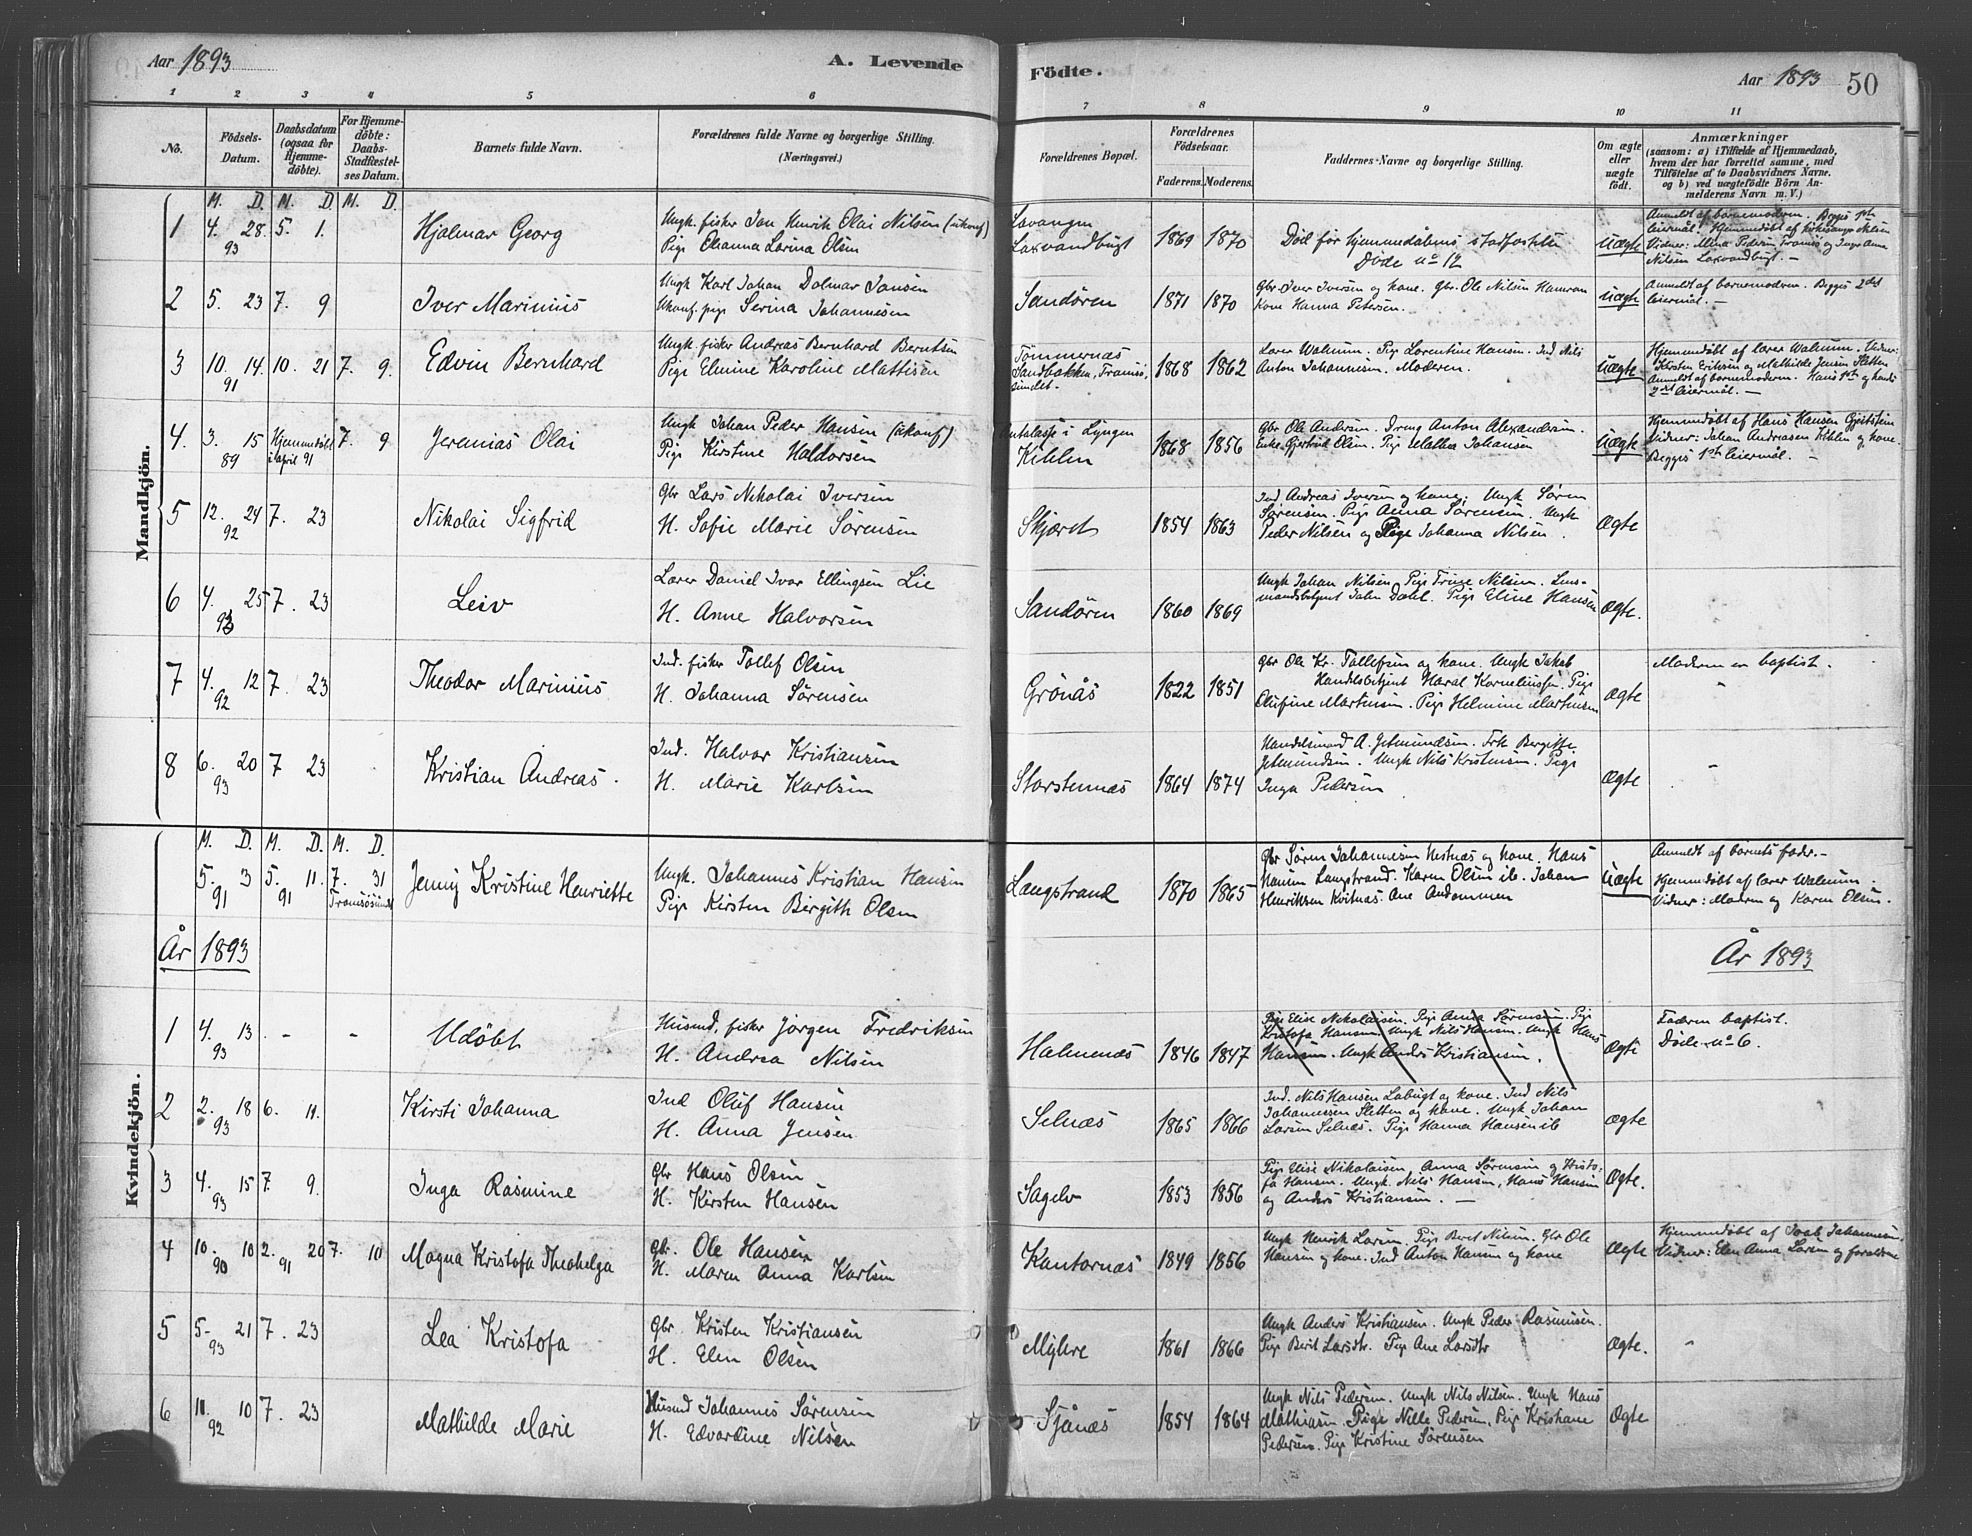 Aar 1893
A. Levende
Födte.
Aar 1893
50
1 2 3 4 5 6
7 8 9 10 11
No.
Födsels-Datum.
Daabsdatum (ogsaa for Hjemmedöbte).
For Hjemmedöbte: Daabs-Stadfæstelses Datum.
Barnets fulde Navn.
Forældrenes fulde Navne og borgerlige Stilling. (Næringsvei.)
Forældrenes Bopæl.
Forældrenes Födselsaar.
Faderens. Moderens.
Faddernes Navne og borgerlige Stilling.
Om ægte eller uægte födt.
Anmærkninger
(saasom: a) i Tilfælde af Hjemmedaab, hvem der har forrettet samme, med Tilföielse af to Daabsvidners Navne, og b) ved uægtefödte Börn Anmelderens Navn m. V.)
Mandkjön.
M. D. M. D. M. D.
1 4. 28. 5. 1.
93
Hjalmar Georg
Ungk. fisker Jan Henrik Olai Nilsen (ukonf)
Pige Elianna Larina Olsen
Lavangen
Laxvandbugt
1869 1870
Död før hjemmedåbens stadfæstelse
Døde no 12
Uægte
Anmeldt af barnemoderen. Begges 1ste
leiermål. Hjemmedöbt af kirkesanger Nilsen
Vidner: Mina Pedersen Tromsø og Inger Anna
Nilsen Laxvandbugt. —
2 5. 23 7. 9
Iver Marinius
Ungk Karl Johan Dolmar Jansen
Ukonf. pige Serina Johannesen
Sandören
1871 1870
Gbr. Iver Iversen og kone. Gbr. Ole Nilsen Hamran
Kone Hanna Petersen.
Uægte
Anmeldt af barnemoderen. Begges 2det
leiermål. —
3 10. 14. 10. 21 7. 9.
91
Edvin Bernhard
Ungk. fisker Andreas Bernhard Berntsen
Pige Elmine Karoline Mattisen
Tömmernæs
Sandbakken, Tromsö-
sundet.
1868 1862
Lærer Walnum. Pige Lorentine Hansen. Ind Nils
Anton Johannesen. Moderen.
Uægte
Hjemmedöbt af lærer Walnum. Vidner:
Kirsten Eriksen og Mathilde Jensen Sletten
Anmeldt af barnemoderen. Hans 1ste og hendes
2det leiermål. —
4. 3. 15 Hjemmedöbt 7. 9
89 i april 91
Jeremias Olai
Ungk Johan Peder Hansen (ukonf)
Pige Kirstine Haldorsen
i Lyngen
Kihlen
1868 1856
Gbr Ole Andersen. Dreng Anton Alexandersen.
Enke Gjertrud Olsen. Pige Mathea Johansen
Uægte
Hjemmedöbt af Hans Hansen Gjetstein
Vidner: Johan Andreasen Kihlen og kone.
Begges 1ste leiermål. —
5 12. 24 7. 23
92
Nikolai Sigfrid
Gbr Lars Nikolai Iversen
H. Sofie Marie Sørensen
Skjæret
1854 1863
Ind Andreas Iversen og kone. Ungk Søren
Sørensen. Pige Anna Sørensen. Ungk
Peder Nilsen og Pige Johanna Nilsen.
Ægte
6 4. 25 7. 23
93
Leiv
Lærer Daniel Ivar Ellingsen Lie
H. Anne Halvorsen
Sandören
1860 1869
Ungk Johan Nilsen. Pige Trine Nilsen. Lens-
mandsbetjent John Dahl. Pige Eline Hansen
Ægte.
7 4. 12 7. 23
92
Theodor Marinius
Ind. fisker Tollef Olsen
H. Johanna Sørensen
Grönås
1822 1851
Gbr Ole Kr. Tollefsen og kone. Ungk Jakob
Handelsbetjent Haral Korneliussen. Pige
Olufine Martinsen. Pige Helmine Martinsen
Ægte
Moderen er baptist.
"
8 6. 20 7 23
93
Kristian Andreas.
Ind. Halvor Kristiansen
H. Marie Karlsen
Storstennæs
1864 1874
Handelsmand A. Jetmundsen. Frk Bergitte
Jetmundsen. Ungk Nils Kristensen. Pige
Inga Pedersen
Ægte
"
Kvindekjön.
M. D. M. D. M. D.
5. 3 5. 11. 7. 31
91 91 Tromsösundet
Jenny Kristine Henriette
Ungk. Johannes Kristian Hansen
Pige Kirsten Birgith Olsen
Langstrand
1870 1865
Gbr Søren Johannesen Nestnæs og kone. Hans
Hansen Langstrand. Karen Olsen ib. Johan
Henriksen Kvitnæs. Ane Andommen
Uægte
Anmeldt af barnets fader. —
Hjemmedöbt af lærer Walnum.
Vidner: Moderen og Karen Olsen.
År 1893
År 1893
1 4. 13 - -
93
Udöbt
Husmd, fisker Jörgen Fredriksen
H. Andrea Nilsen
Halmenæs
1846 1847
Pige Elise Nikolaisen. Pige Anna Sørensen. Pige
Kristofa Hansen. Ungk Nils Hansen. Ungk Hans
Hansen. Ungk Anders Kristiansen.
Ægte
Faderen baptist.
Döde no 6.
2 2. 18 6. 11.
93
Kirsti Johanna
Ind Oluf Hansen
H. Anna Jensen
Selnæs
1865 1866
Ind. Nils Hansen Labugt og kone. Ind Nils
Johannessen Sletten og kone. Ungk Johan
Larsen Selnæs. Pige Hanna Hansen ib
Ægte
3 4. 15 7. 9.
93
Inga Rasmine
Gbr Hans Olsen
H. Kirsten Hansen
Sagelv
1853 1856
Pige Elise Nikolaisen. Anna Sørensen og Kristo-
fa Hansen. Ungk. Nils Hansen, Hans Hansen
og Anders Kristiansen. —
Ægte.
4 10. 10 2. 20 7. 10
90 91
Magna Kristofa Theahelga
Gbr. Ole Hansen
H. Maren Anna Karlsen
Kantornæs
1849 1856
Ungk Henrik Larsen. Pige Beret Nilsen. Gbr Ole
Hansen og kone. Ind Anton Hansen og kone
Ægte
Hjemmedöbt af Isak Johannesen.
Vidner: Elen Anna Larsen og forældrene
5 5- 21 7. 23
93
Lea Kristofa
Gbr. Kristen Kristiansen
H. Elen Olsen
Myhre
1861 1866
Ungk Anders Kristiansen. Ungk Peder Rasmusen.
Pige Berit Larsdtr. Pige Ane Larsdtr
Ægte.
"
6 11. 10 7. 23
92
Mathilde Marie
Husmd Johannes Sørensen
H. Edvardine Nilsen
Sjånæs
1854 1864
Ungk Nils Pedersen. Ungk Nils Nilsen. Ungk Hans
Mathiasen. Pige Nille Pedersen, Pige Kristiane
Pedersen. Pige Kristine Sørensen
Ægte